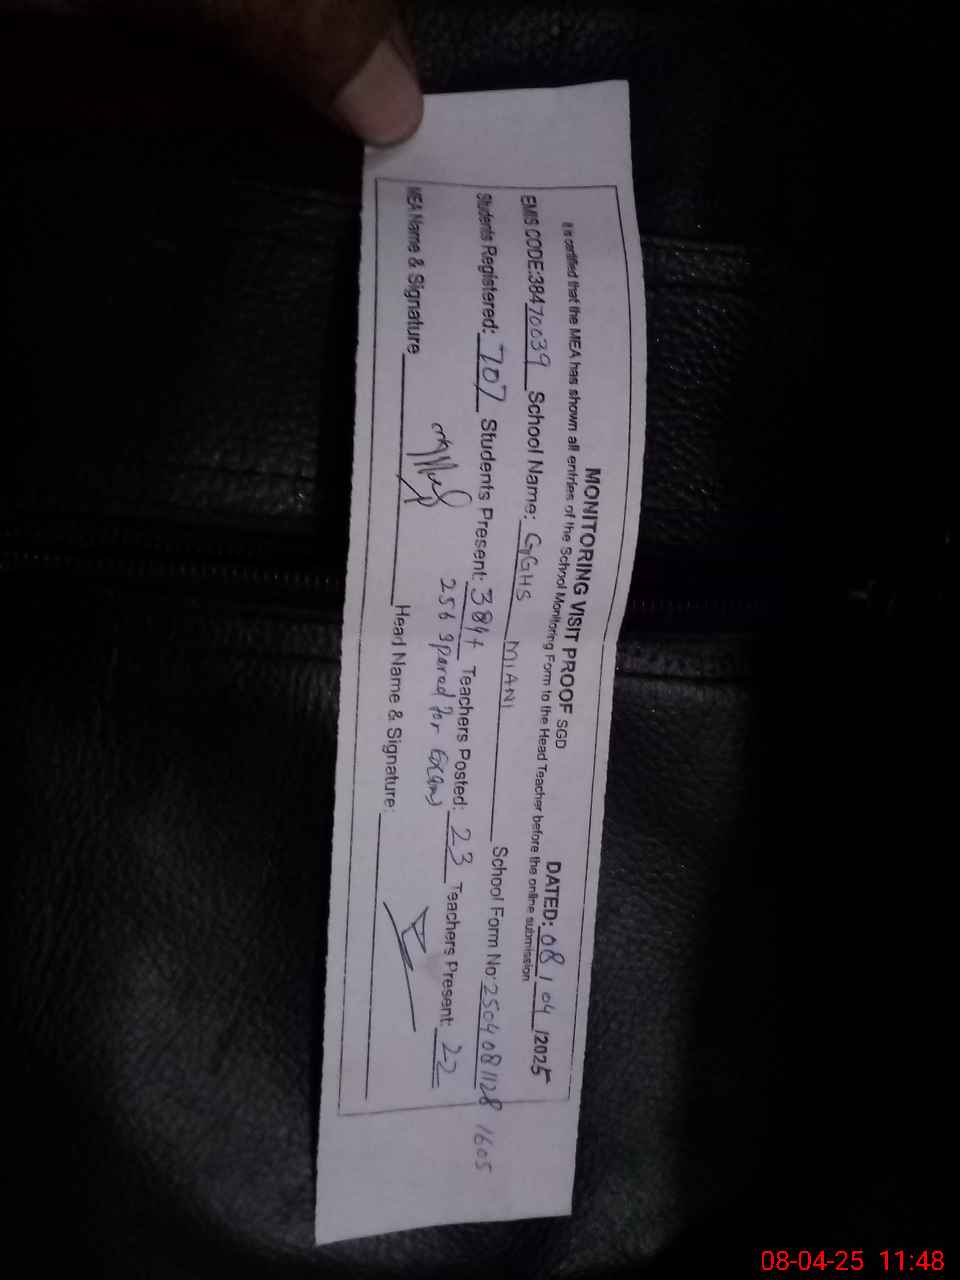 MONITORING VISIT PROOF SGD DATED: 08 / 04 /2025
It is certified that the MEA has shown all entries of the School Monitoring Form to the Head Teacher before the online submission
EMIS CODE:38470039 School Name: GGHS MIANI School Form No:2504081128 1605
Students Registered: 707 Students Present: 384+ Teachers Posted: 23 Teachers Present: 22
256 spared for Exams
MEA Name & Signature Head Name & Signature:
08-04-25 11:48